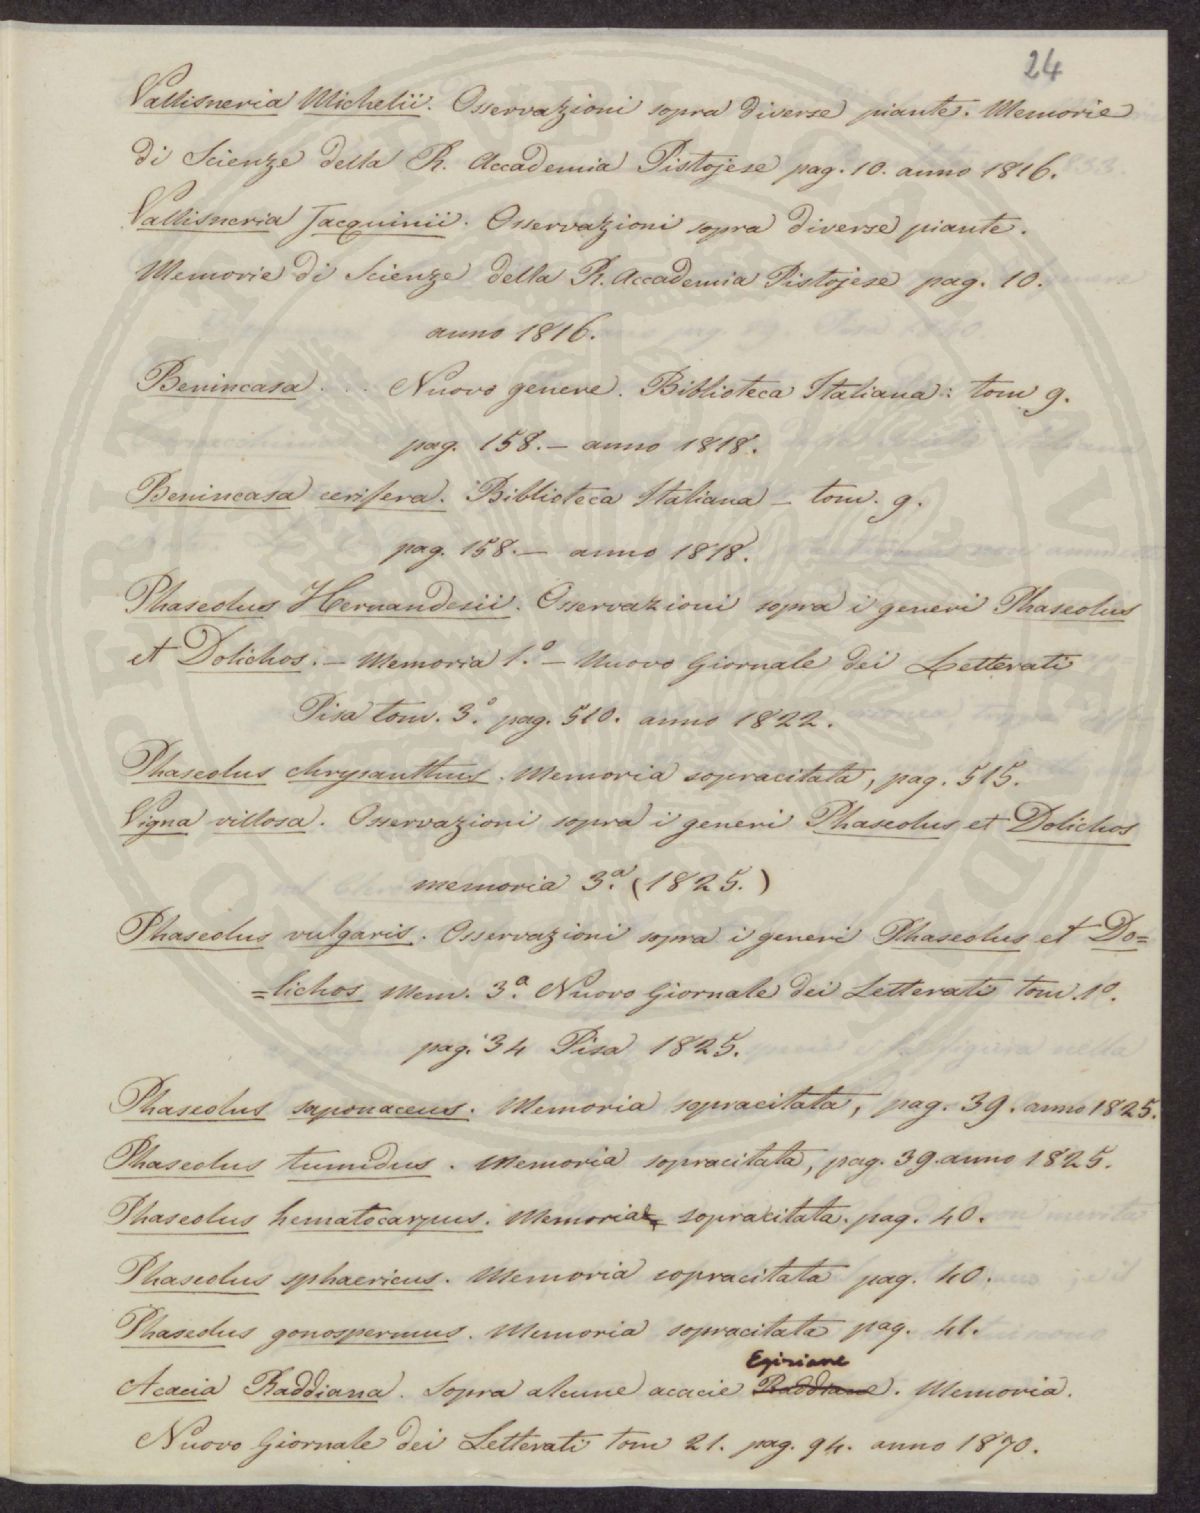 24
Vallisneria Michelii. Osservazioni sopra diverse piante. Memorie
di Scienze della R. Accademia Pistojese pag. 10. anno 1816.
Vallisneria Jacquinii. Osservazioni sopra diverse piante.
Memorie di Scienze della R. Accademia Pistojese pag. 10.
anno 1816.
Benincasa. . . Nuovo genere. Biblioteca Italiana: tom 9.
pag. 158. — anno 1818.
Benincasa cerifera. Biblioteca Italiana — tom. 9.
pag. 158. — anno 1818.
Phaseolus Hernandesii. Osservazioni sopra i generi Phaseolus
et Dolichos. — Memoria 1.º — Nuovo Giornale dei Letterati
Pisa tom. 3.º pag. 510. anno 1822.
Phaseolus chrysanthus. Memoria sopracitata, pag. 515.
Vigna villosa. Osservazioni sopra i generi Phaseolus et Dolichos
memoria 3.ª (1825.)
Phaseolus vulgaris. Osservazioni sopra i generi Phaseolus et Do=
=lichos Mem. 3.ª Nuovo Giornale dei Letterati tom. 1º.
pag. 34 Pisa 1825.
Phaseolus saponaceus. Memoria sopracitata, pag. 39. anno 1825.
Phaseolus tumidus. Memoria sopracitata, pag. 39. anno 1825.
Phaseolus hematocarpus. Memoria sopracitata. pag. 40.
Phaseolus sphaericus. Memoria sopracitata pag. 40.
Phaseolus gonospermus. Memoria sopracitata pag. 41.
Egiziane
Acacia Raddiana. Sopra alcune acacie Raddiane. Memoria.
Nuovo Giornale dei Letterati tom 21. pag. 94. anno 1870.